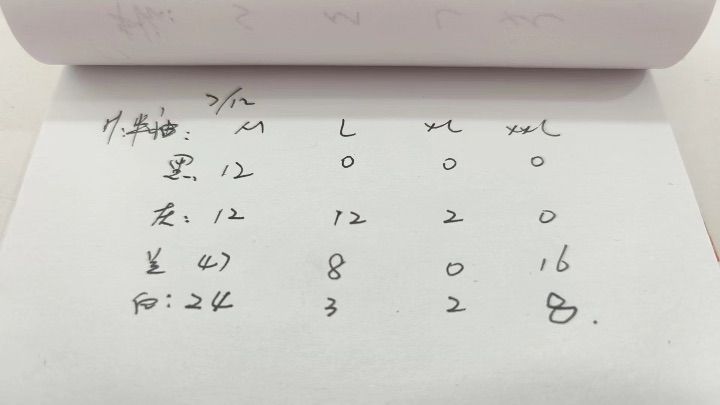 7/12
半袖: M L XL XXL
黑 12 0 0 0
灰: 12 12 2 0
兰 47 8 0 16
白: 24 3 2 8.